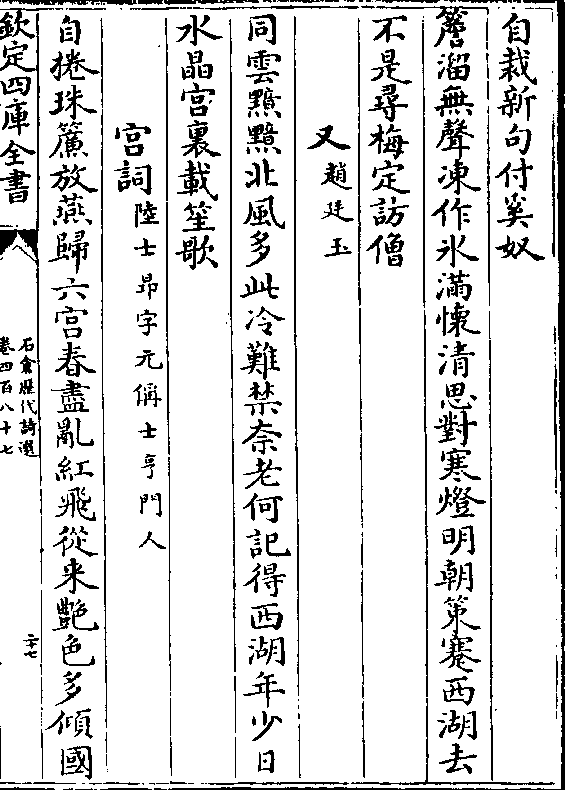 自裁新句付奚奴
簷溜無聲凍作氷滿懷清思對寒燈明朝策蹇西湖去
不是尋梅定訪僧
又趙廷玉
同雲黯黯北風多此冷難禁奈老何記得西湖年少日
水晶宫裏載笙歌
宫詞陸士昻字元偁士亨門人
自捲珠簾放燕歸六宫春盡亂紅飛從来艷色多傾國
欽定四庫全書
石倉歷代詩選
卷四百八十七
二十七